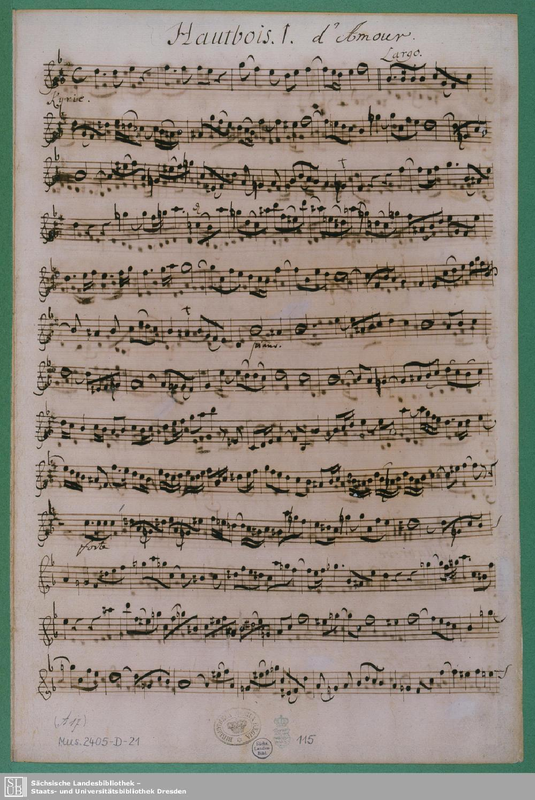 Hautbois. 1. d'Amour.
Largo.
Kyrie.
piano.
forte
(A 17)
Mus. 2405-D-21
115
SLUB
Sächsische Landesbibliothek –
Staats- und Universitätsbibliothek Dresden